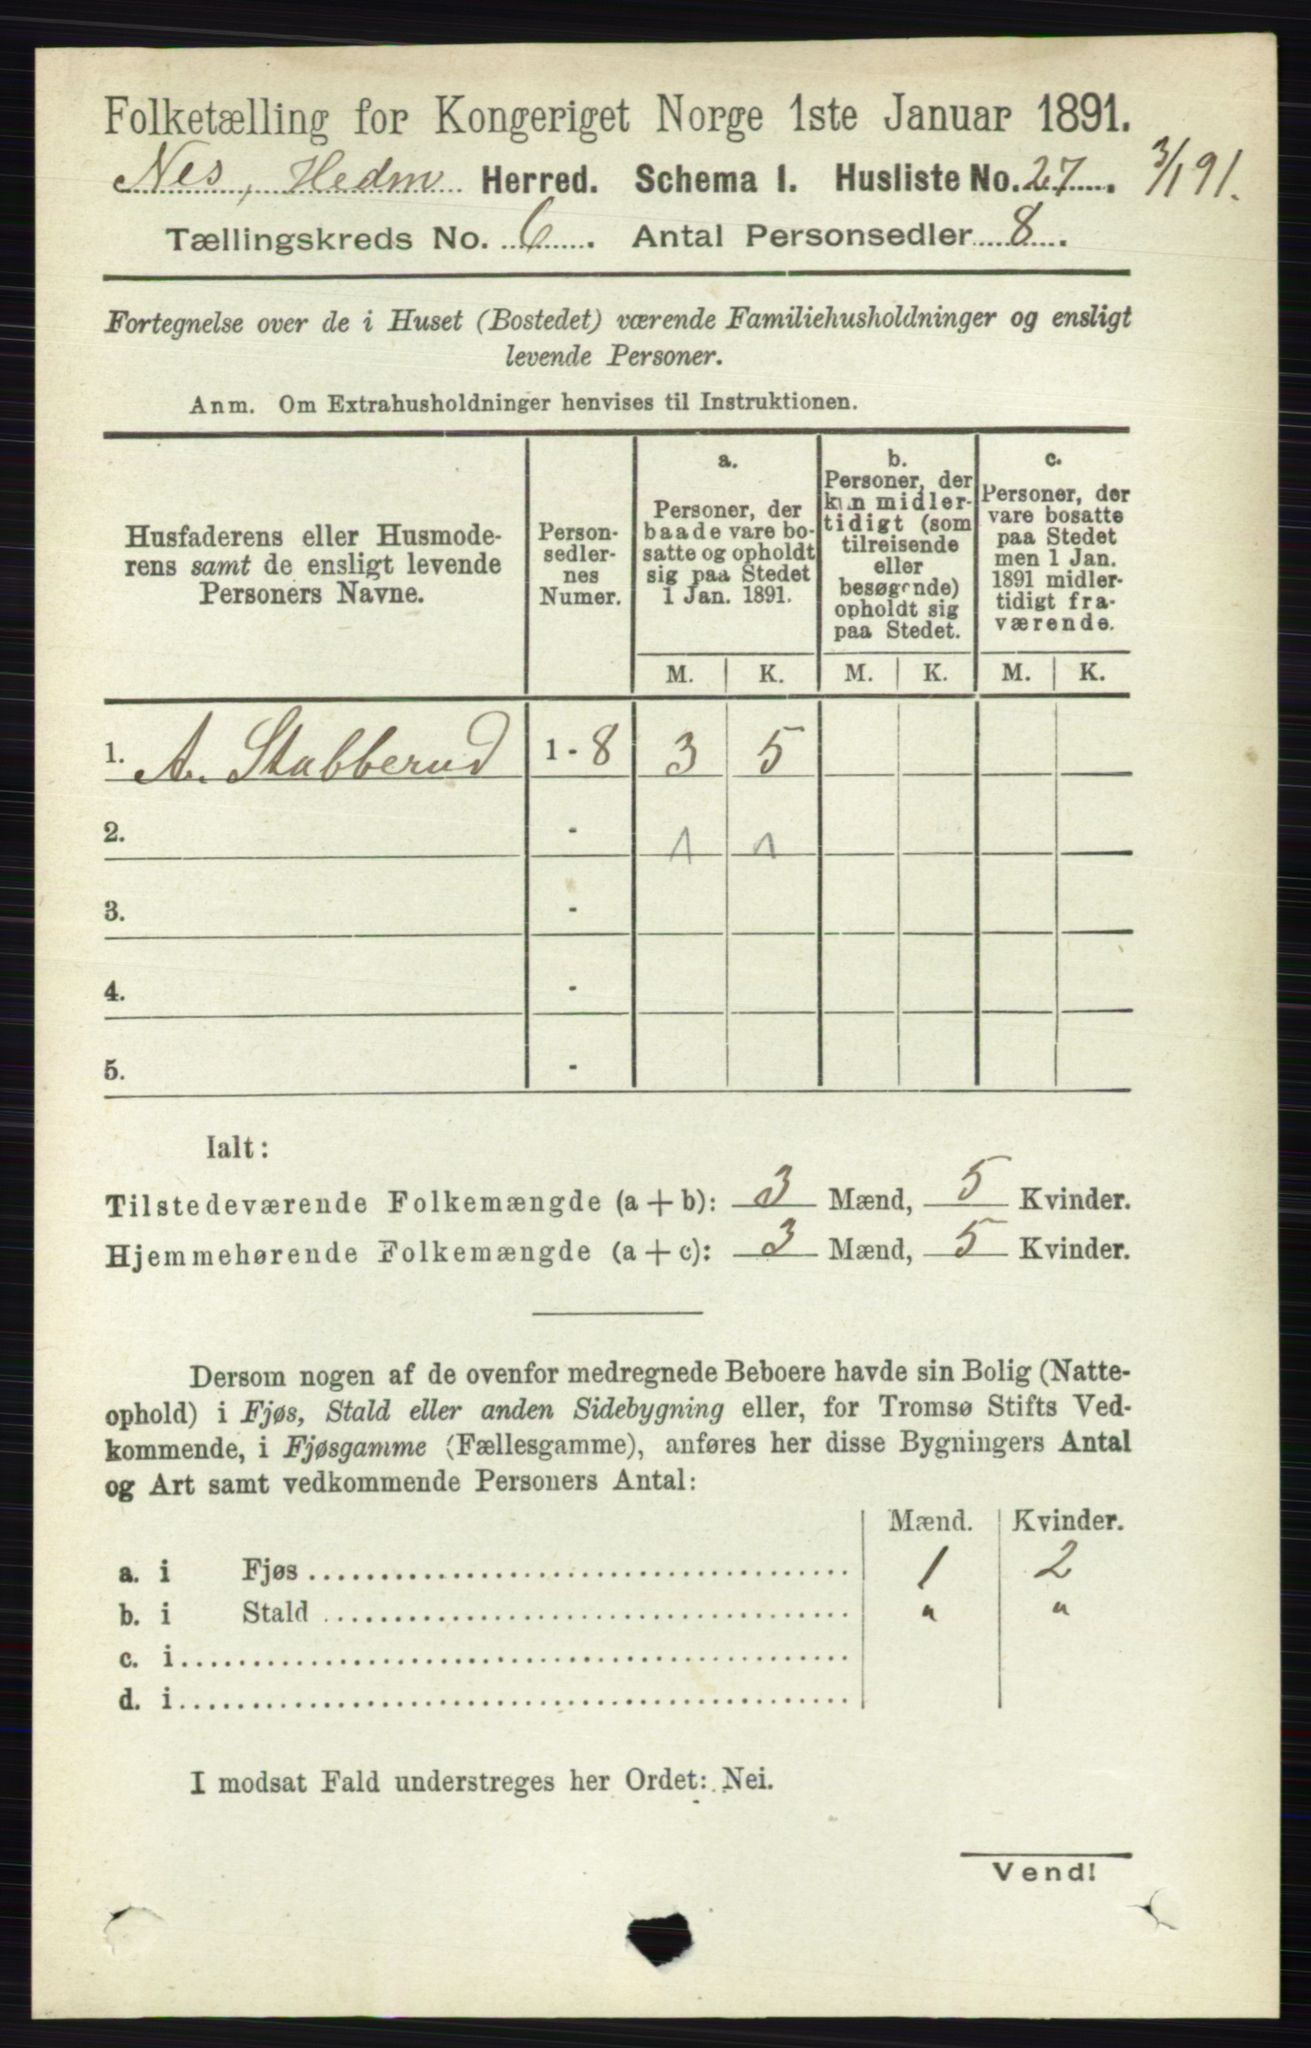 Folketælling for Kongeriget Norge 1ste Januar 1891.
Nes, Hedm Herred. Schema 1. Husliste No. 27. 3/1 91.
Tællingskreds No. 6. Antal Personsedler 8.
Fortegnelse over de i Huset (Bostedet) værende Familiehusholdninger og ensligt
levende Personer.
Anm. Om Extrahusholdninger henvises til Instruktionen.
Husfaderens eller Husmode-
rens samt de ensligt levende
Personers Navne.
Person-
sedler-
nes
Numer.
a.
Personer, der
baade vare bo-
satte og opholdt
sig paa Stedet
1 Jan. 1891.
b.
Personer, der
kun midler-
tidigt (som
tilreisende
eller
besøgende)
opholdt sig
paa Stedet.
c.
Personer, der
vare bosatte
paa Stedet
men 1 Jan.
1891 midler-
tidigt fra-
værende.
M. K. M. K. M. K.
1. A. Stabberud 1 - 8 3 5
2. - 1 1
3. -
4. -
5. -
Ialt:
Tilstedeværende Folkemængde (a + b): 3 Mænd, 5 Kvinder.
Hjemmehørende Folkemængde (a + c): 3 Mænd, 5 Kvinder.
Dersom nogen af de ovenfor medregnede Beboere havde sin Bolig (Natte-
ophold) i Fjøs, Stald eller anden Sidebygning eller, for Tromsø Stifts Ved-
kommende, i Fjøsgamme (Fællesgamme), anføres her disse Bygningers Antal
og Art samt vedkommende Personers Antal:
Mænd. Kvinder.
a. i Fjøs 1 2
b. i Stald " "
c. i
d. i
I modsat Fald understreges her Ordet: Nei.
Vend!